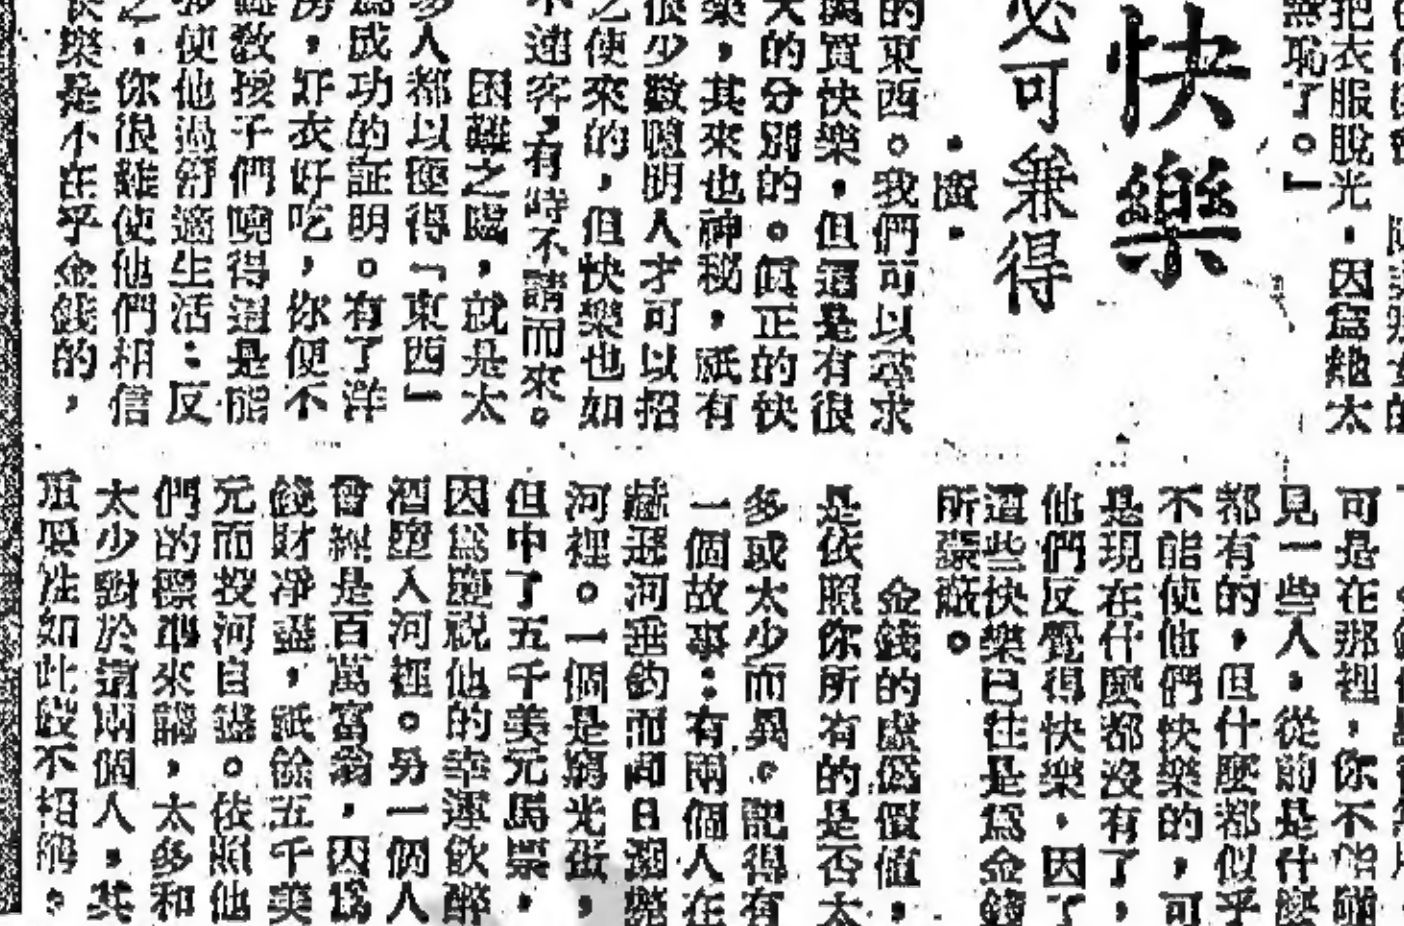 把衣服脫光，因為絕太
無恥了。」
快樂
必可兼得
·廬·
的東西。我們可以尋求
買快樂，但還是有很
大的分別的。真正的快
樂，其來也神秘，祇有
很少數聰明人才可以招
之使來的，但快樂也如
不速客，有時不請而來。
困難之處，就是太
多人都以獲得「東西」
為成功的証明。有了洋
房，好衣好吃，你便不
教孩子們曉得這是能
使他過舒適生活；反
之，你很難使他們相信
快樂是不在乎金錢的，
可是在那裡，你不能碰
見一些人，從前是什麼
都有的，但什麼都似乎
不能使他們快樂的，可
是現在什麼都沒有了，
他們反覺得快樂，因了
這些快樂已往是為金錢
所蒙蔽。
金錢的虛偽價值，
是依照你所有的是否太
多或太少而異。記得有
一個故事：有兩個人在
赫遜河垂釣而同日溺斃
河裡。一個是窮光蛋，
但中了五千美元馬票，
因為慶祝他的幸運飲醉
酒墮入河裡。另一個人
曾經是百萬富翁，因為
錢財淨盡，祇餘五千美
元而投河自盡。依照他
們的標準來講，太多和
太少對於這兩個人，其
重要性如此般不相稱。